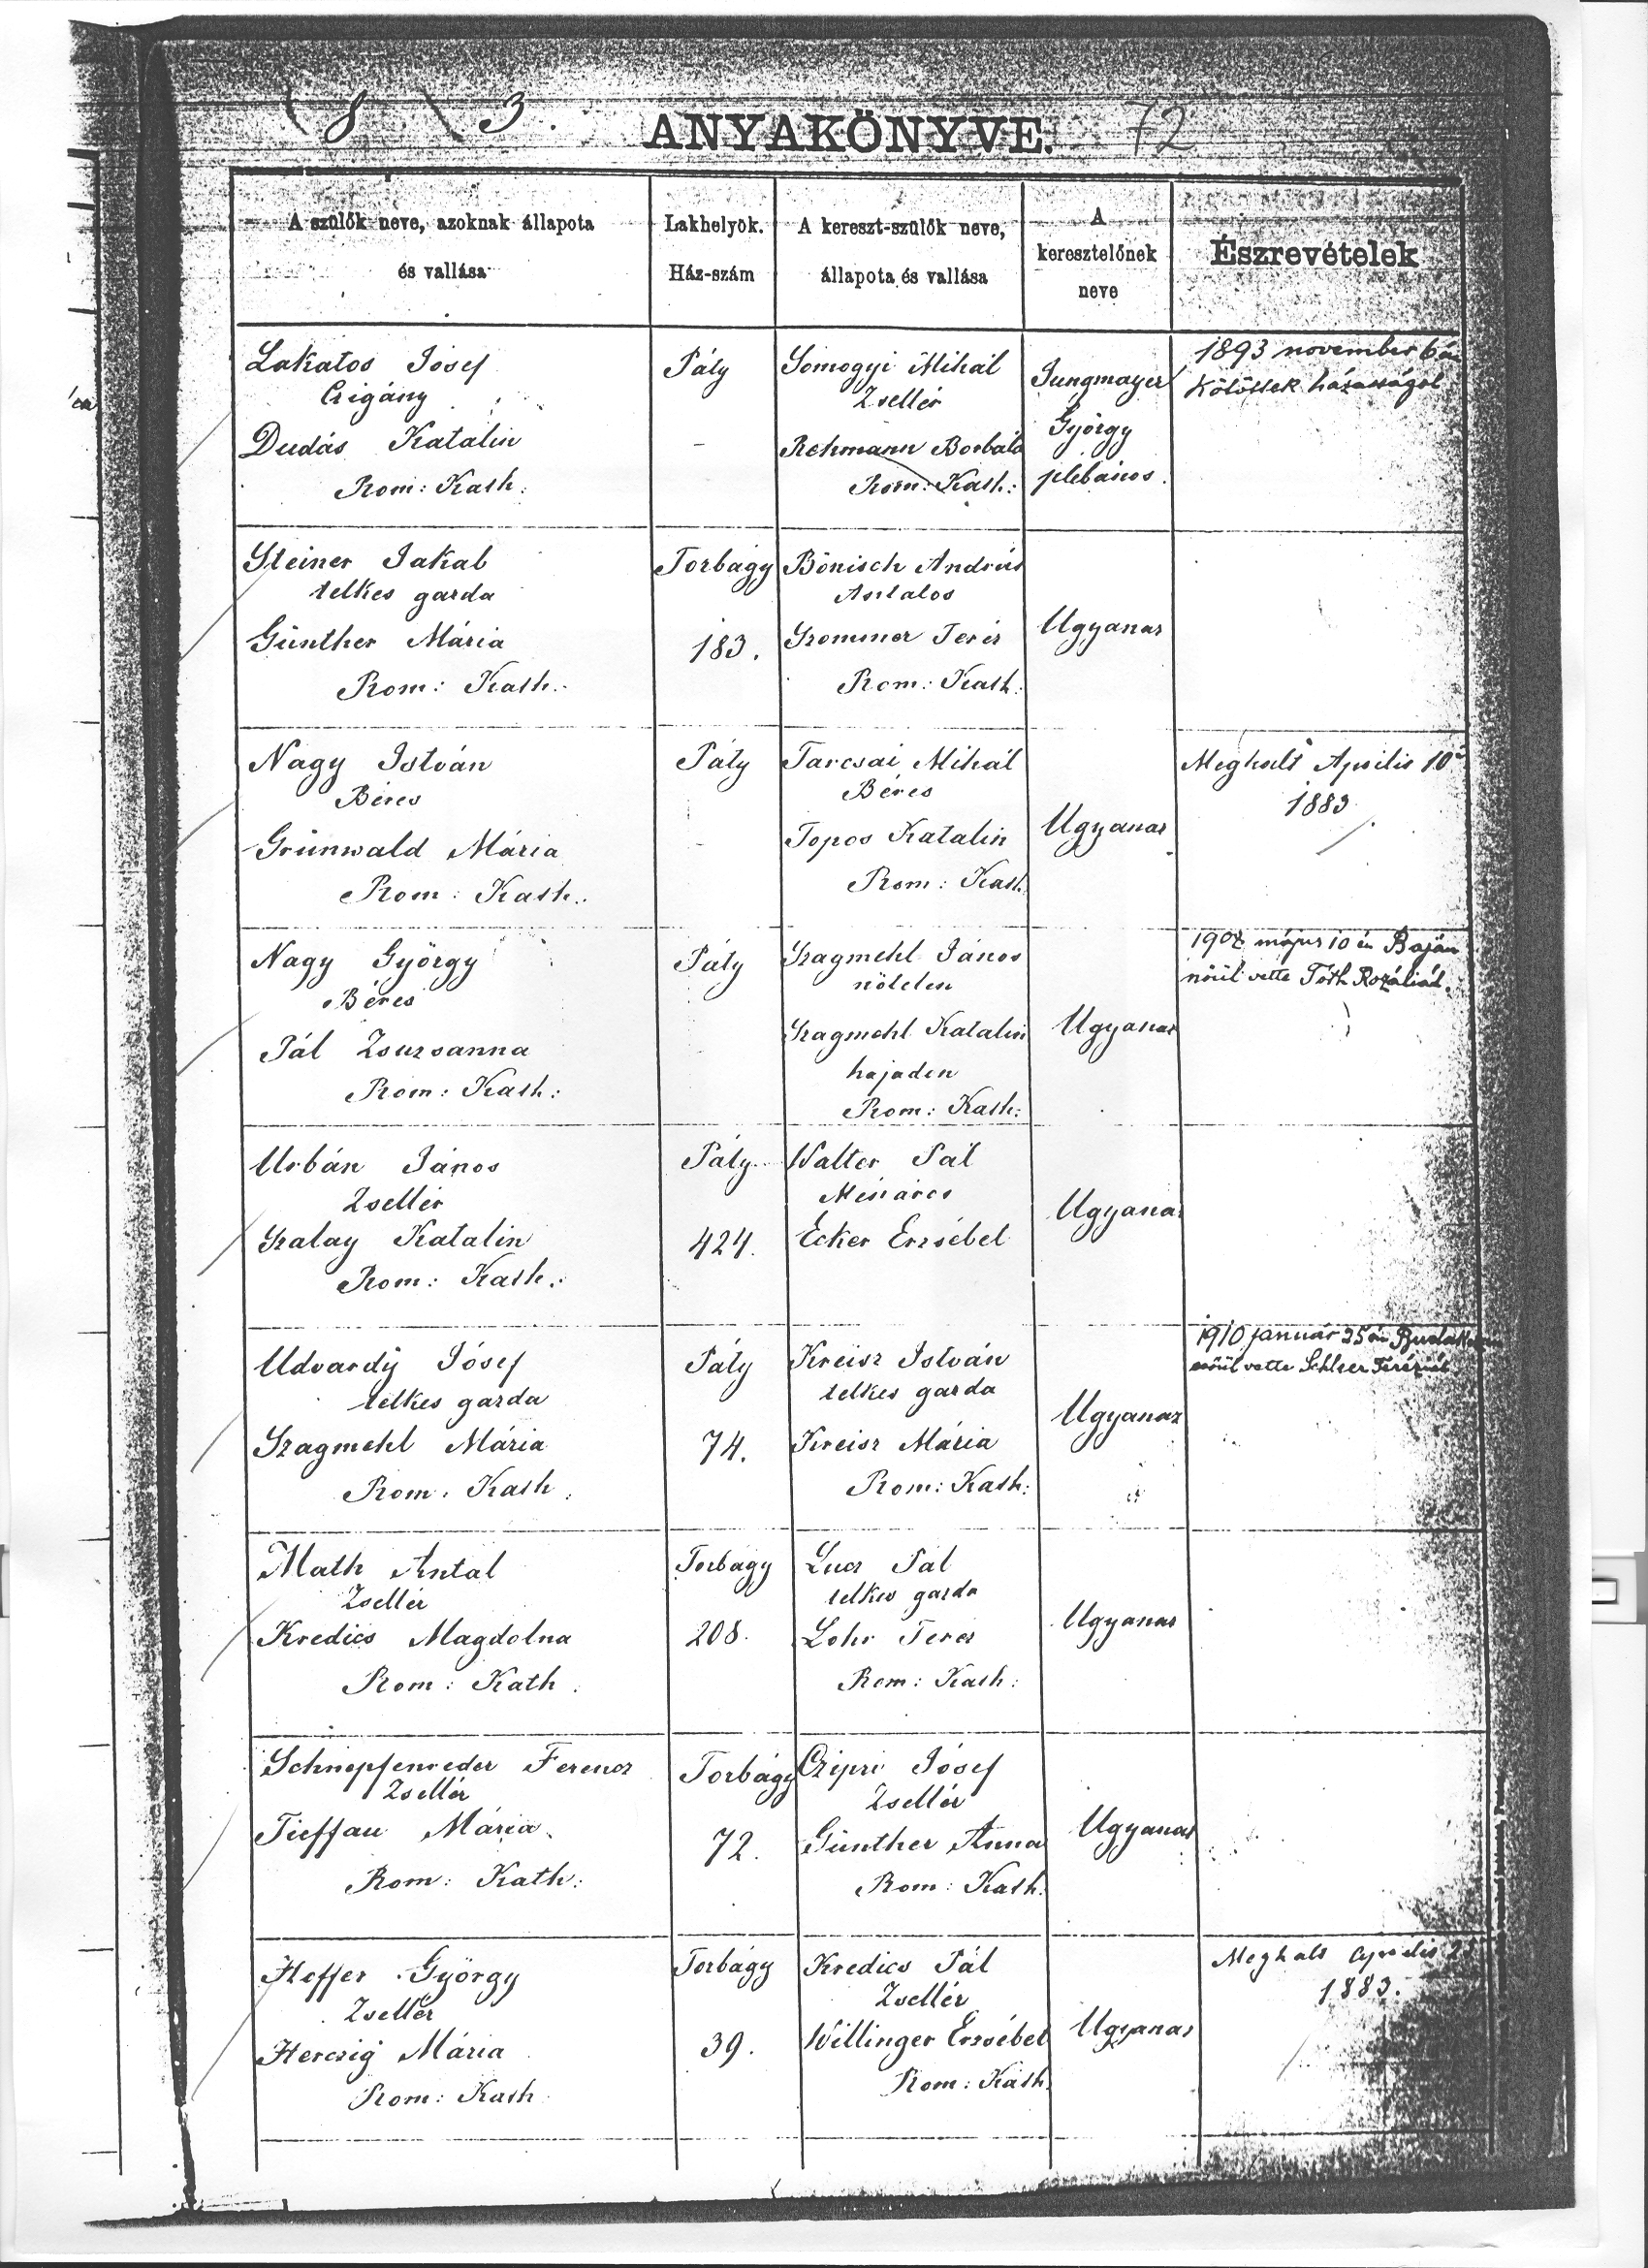 8 3.
ANYAKÖNYVE. 72
A szülők neve, azoknak állapota
és vallása
Lakhelyök.
Ház-szám
A kereszt-szülők neve,
állapota és vallása
A
keresztelőnek
neve
Észrevételek
Lakatos Iósef
Czigány
Dudás Katalin
Rom: Kath:
Pály
Somogyi Mihál
Zsellér
Rehmann Borbála
Rom: Kath:
Jungmayer
György
plebános.
1893 november 6án
Kötöttek házasságot
Steiner Jakab
telkes garda
Günther Mária
Rom: Kath:
Torbágy
183.
Bönisch András
Asztalos
Szommer Teréz
Rom: Kath:
Ugyanaz
Nagy István
Béres
Grünwald Mária
Rom: Kath:
Pály
Tarcsai Mihál
Béres
Topos Katalin
Rom: Kath:
Ugyanaz
Meghalt Április 10
1883
Nagy György
Béres
Pál Zsuzsanna
Rom: Kath:
Pály
Szagmehl János
nötelen
Szagmehl Katalin
hajadon
Rom: Kath:
Ugyanaz
május 10 én Baján
nőül vette Tóth Rozáliát.
Urbán János
Zsellér
Szalay Katalin
Rom: Kath:
Pály
424.
Walter Pál
Mészáros
Ecker Erzsébet
Ugyanaz
Udvardy Iósef
telkes garda
Szagmehl Mária
Rom: Kath:
Pály
74.
Kreisz István
telkes garda
Kreisz Mária
Rom: Kath:
Ugyanaz
1910 január 25 én
nőül vette Schleer Teréziát
Math Antal
Zsellér
Kredics Magdolna
Rom: Kath.
Torbagy
208.
Lucz Pal
telkes garda
Lohr Terez
Rom: Kath:
Ugyanaz
Schnepfenreder Ferencz
Zsellér
Tieffau Mária
Rom: Kath:
Torbágy
72.
Czipri Iósef
Zsellér
Günther Anna
Rom: Kath:
Ugyanaz
Heffer György
Zsellér
Herczig Mária
Rom: Kath
Torbágy
39.
Kredics Pál
Zsellér
Willinger Erzsébet
Rom: Kath
Ugyanaz
Meghalt Április
1883.